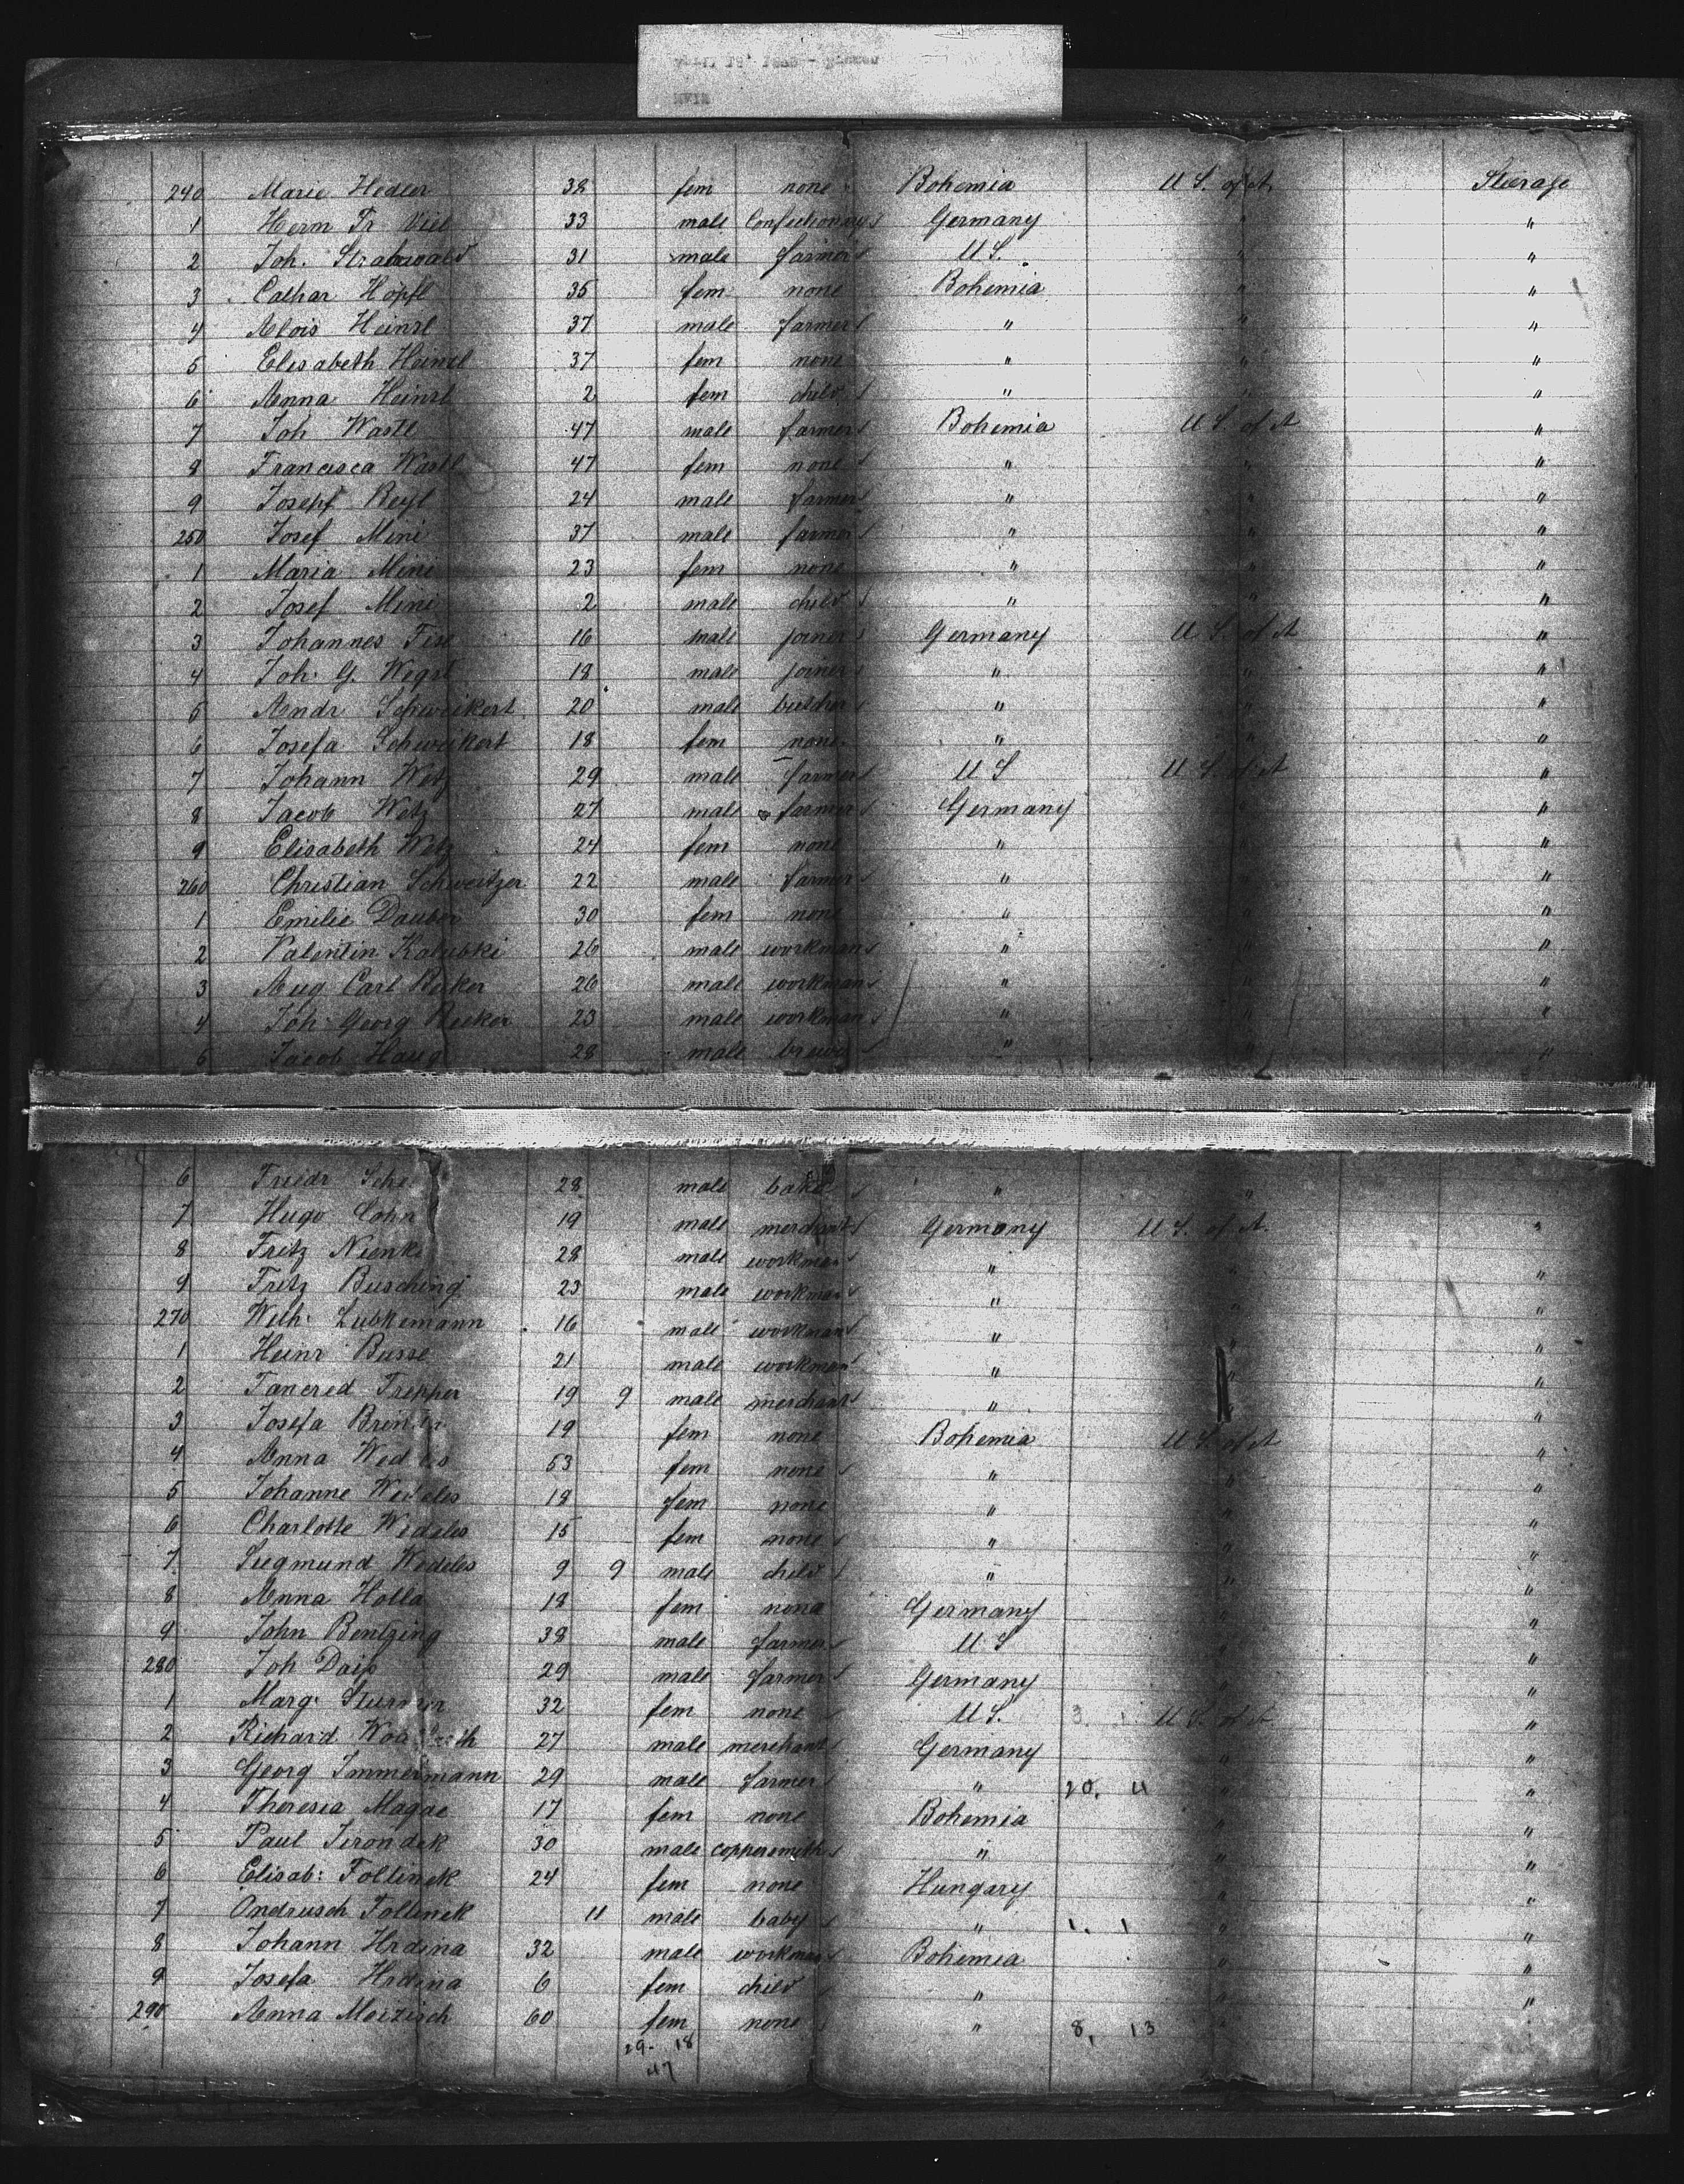 240 Marie Hedler 38 fem none Bohemia U S. of A. Steerage
1 Herm Fr Viel 33 male Confectionary Germany " "
2 Joh. 31 male farmer U S. " "
3 Cathar Hopfl 35 fem none Bohemia " "
4 Alois Heinzl 37 male farmer " " "
5 Elisabeth Heinzl 37 fem none " " "
6 Anna Heinzl 2 fem child " " "
7 Joh Wastl 47 male farmer Bohemia U S. of A "
8 Francisca Wastl 47 fem none " " "
9 Josepf Beyl 24 male farmer " " "
250 Josef Mini 37 male farmer " " "
1 Maria Mini 23 fem none " " "
2 Josef Mini 2 male child " " "
3 Johannes 16 male joiner Germany U S. of A "
4 Joh. G. 18 male joiner " " "
5 Andr Schweikert 20 male butcher " " "
6 Josefa Schweikert 18 fem none " " "
7 Johann Wetz 29 male farmer U S U S. of A "
8 Jacob Wetz 27 male farmer Germany " "
9 Elisabeth Wetz 24 fem none " " "
260 Christian Schweitzer 22 male farmer " " "
1 Emilie Dauber 30 fem none " " "
2 Valentin Kalubki 26 male workman " " "
3 Aug Carl Becker 26 male workman " " "
4 Joh. Georg Becker 23 male workman " " "
5 Jacob Haug 28 male brewer " " "
6 Friedr 28 male baker " " "
7 Hugo Cohn 19 male merchant Germany U S. of A. "
8 Fritz Nienke 28 male workman " " "
9 Fritz Busching 23 male workman " " "
270 Wilh. Lubkemann 16 male workman " " "
1 Heinr Busse 21 male workman " " "
2 Tancred Trepper 19 9 male merchant " " "
3 Josefa 19 fem none Bohemia U S. of A "
4 Anna Wedeles 53 fem none " " "
5 Johanne Wedeles 18 fem none " " "
6 Charlotte Wedeles 15 fem none " " "
7 Siegmund Wedeles 9 9 male child " " "
8 Anna Holla 18 fem none Germany " "
9 John Bentzing 38 male farmer U S " "
280 Joh Daiß 29 male farmer Germany " "
1 Marg. 32 fem none U S. 3. U S. of A "
2 Richard 27 male merchant Germany " "
3 Georg Immermann 29 male farmer " 20, 4 " "
4 Theresia Magac 17 fem none Bohemia " "
5 Paul Jerondek 30 male coppersmith " " "
6 Elisab: Follinek 24 fem none Hungary " "
7 Andrusch Follinek 11 male baby " 1. 1 " "
8 Johann Hrdina 32 male workman Bohemia " "
9 Josefa Hrdina 6 fem child " " "
290 Anna Moizisch 60 fem none " 8, 13 "
29- 18
47